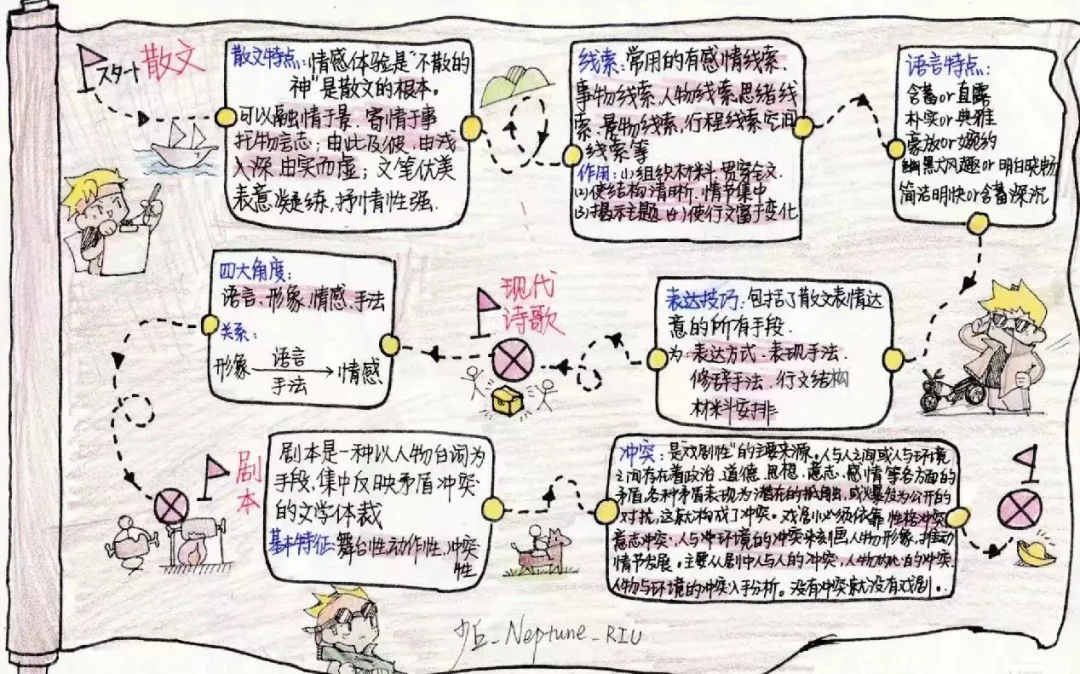 スタート
散文
散文特点:情感体验是“不散的
神”是散文的根本。
可以融情于景、寄情于事
托物言志;由此及彼,由浅
入深,由实而虚;文笔优美
表意凝练,抒情性强.
线索:常用的有感情线索、
事物线索,人物线索,思绪线
索、景物线索,行程线索,空间
线索等
作用:(1)组织材料,贯穿全文.
(2)使结构清晰.情节集中
(3)揭示主题(4)使行文富于变化
语言特点:
含蓄or直露
朴实or典雅
豪放or婉约
幽默风趣or明白晓畅
简洁明快or含蓄深沉
表达技巧:包括了散文表情达
意的所有手段.
为:表达方式、表现手法.
修辞手法、行文结构
材料安排
现代
诗歌
四大角度:
语言、形象、情感、手法
关系:
形象 语言 情感
手法
剧
本
剧本是一种以人物台词为
手段,集中反映矛盾冲突
的文学体裁
基本特征:舞台性,动作性,冲突
性
冲突:是“戏剧性”的主要来源。人与人之间或人与环境
之间存在着政治、道德、思想、意志、感情等各方面的
矛盾,各种矛盾表现为潜在的抵触,或爆发为公开的
对抗,这就构成了冲突。戏剧必须依靠性格冲突
意志冲突,人与环境的冲突来刻画人物形象,推动
情节发展。主要从剧中人与人的冲突,人物内心的冲突.
人物与环境的冲突入手分析。没有冲突就没有戏剧。
Neptune_RIU